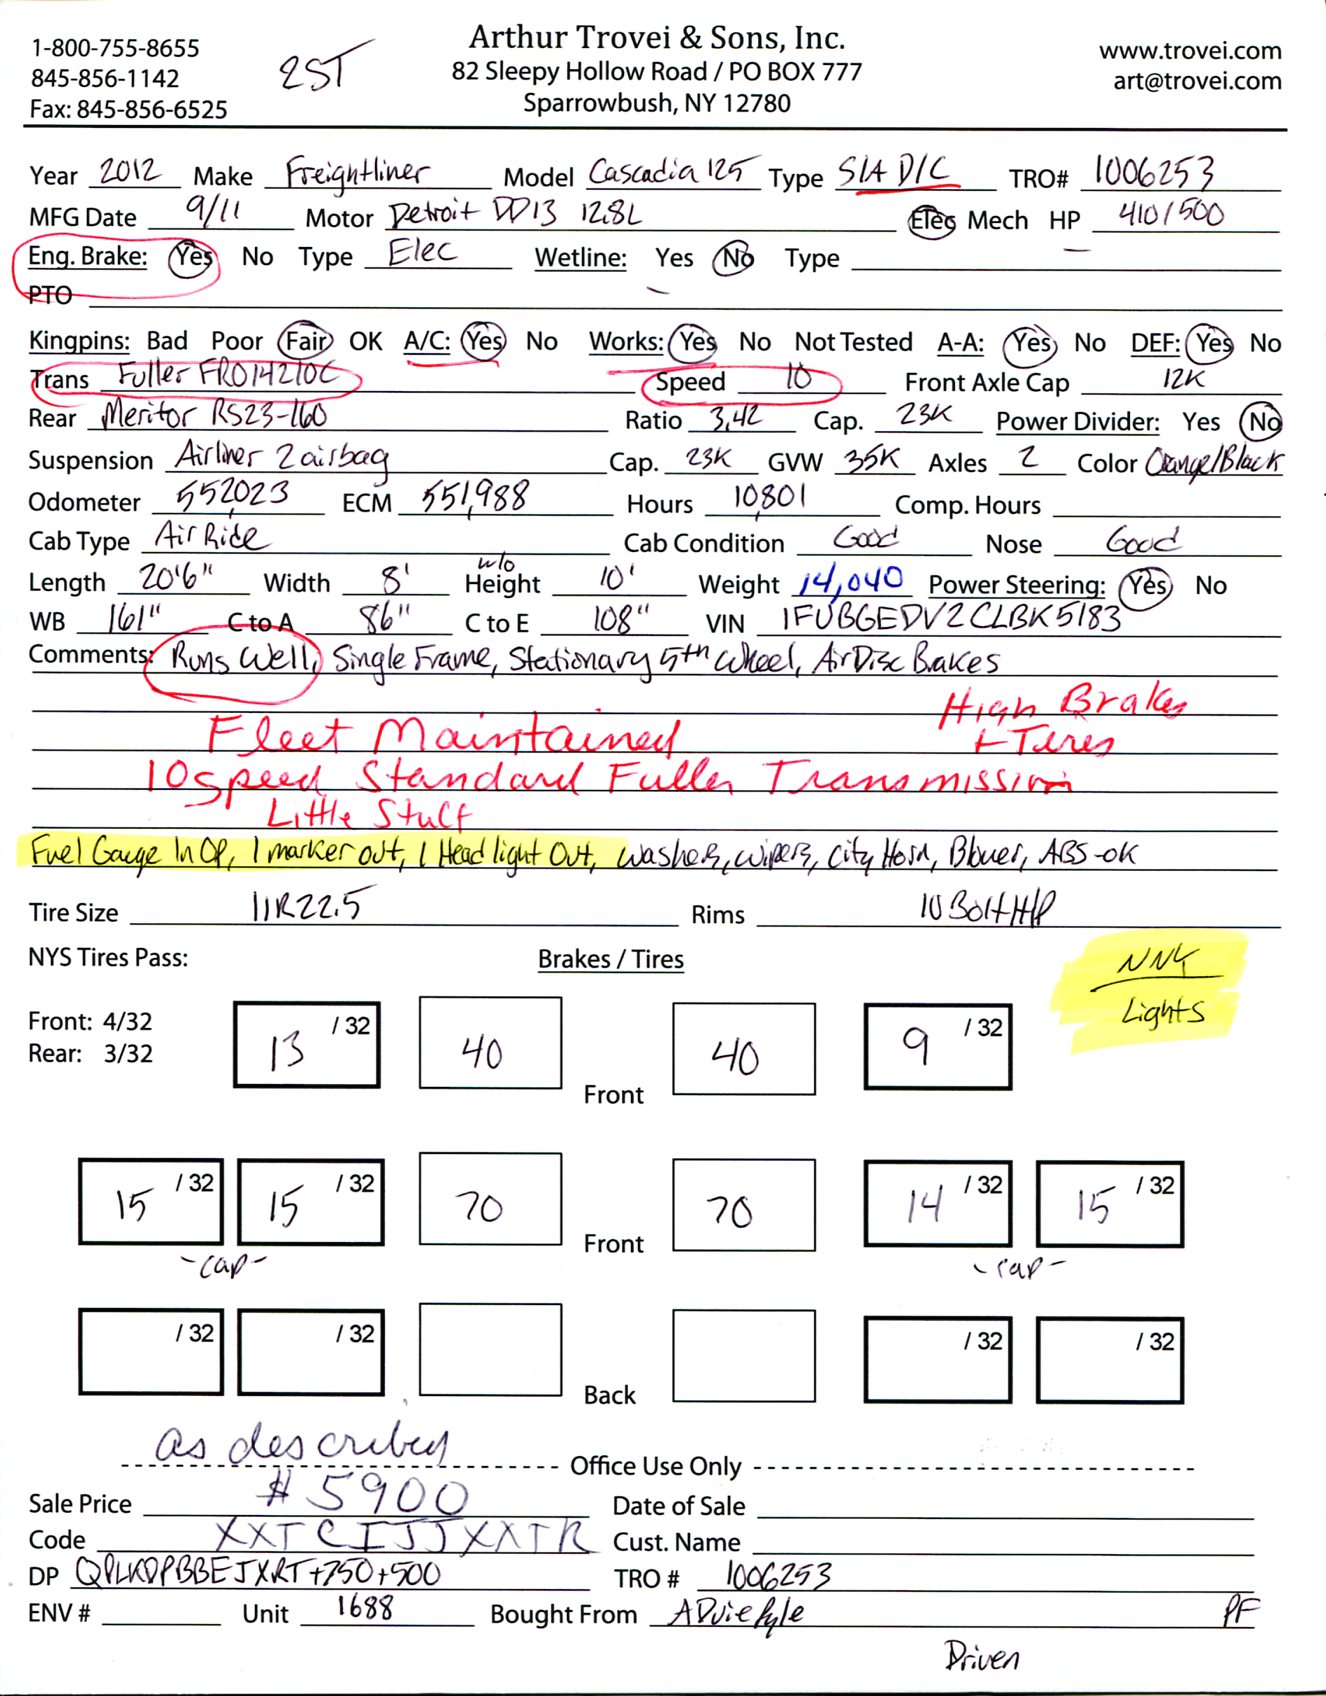 1-800-755-8655
845-856-1142
Fax: 845-856-6525
2ST
Arthur Trovei & Sons, Inc.
82 Sleepy Hollow Road / PO BOX 777
Sparrowbush, NY 12780
www.trovei.com
art@trovei.com
Year 2012 Make Freightliner Model Cascadia 125 Type S/A D/C TRO# 1006253
MFG Date 9/11 Motor Detroit DD13 12.8L Elec Mech HP 410/500
Eng. Brake: Yes No Type Elec Wetline: Yes No Type
PTO
Kingpins: Bad Poor Fair OK A/C: Yes No Works: Yes No Not Tested A-A: Yes No DEF: Yes No
Trans Fuller FRO14210C Speed 10 Front Axle Cap 12K
Rear Meritor RS23-160 Ratio 3.42 Cap. 23K Power Divider: Yes No
Suspension Airliner 2 airbag Cap. 23K GVW 35K Axles 2 Color Orange/Black
Odometer 552,023 ECM 551,988 Hours 10,801 Comp. Hours
Cab Type Air Ride Cab Condition Good Nose Good
Length 20'6" Width 8' w/o Height 10' Weight 14,040 Power Steering: Yes No
WB 161" C to A 86" C to E 108" VIN 1FUBGEDV2CLBK5183
Comments: Runs Well, Single Frame, Stationary 5th Wheel, Air Disc Bakes
High Brakes
Fleet Maintained + Tires
10 speed Standard Fuller Transmission
Little Stuff
Fuel Gauge In OP, 1 marker out, 1 Head light Out, Washers, Wipers, City Horn, Blower, ABS-OK
Tire Size 11R22.5 Rims 10 Bolt H/P
NYS Tires Pass: Brakes / Tires NNY
Lights
Front: 4/32
Rear: 3/32
13 /32 40 Front 40 9 /32
15 /32 15 /32 70 Front 70 14 /32 15 /32
-cap- -cap-
/32 /32 Back /32 /32
as described
Office Use Only
Sale Price # 5900 Date of Sale
Code XXTCIJJXXTR Cust. Name
DP QPLKDPBBEJXRT+750+500 TRO # 1006253
ENV # Unit 1688 Bought From PF
Driven